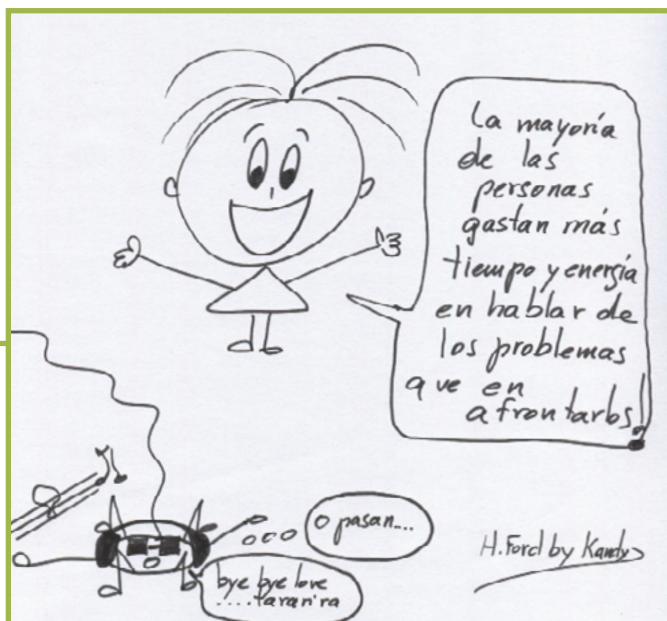 La mayoría
de las
personas
gastan más
tiempo y energía
en hablar de
los problemas
que en
afrontarlos!
o pasan....
bye bye love
.....tararira
H. Ford by Kandy